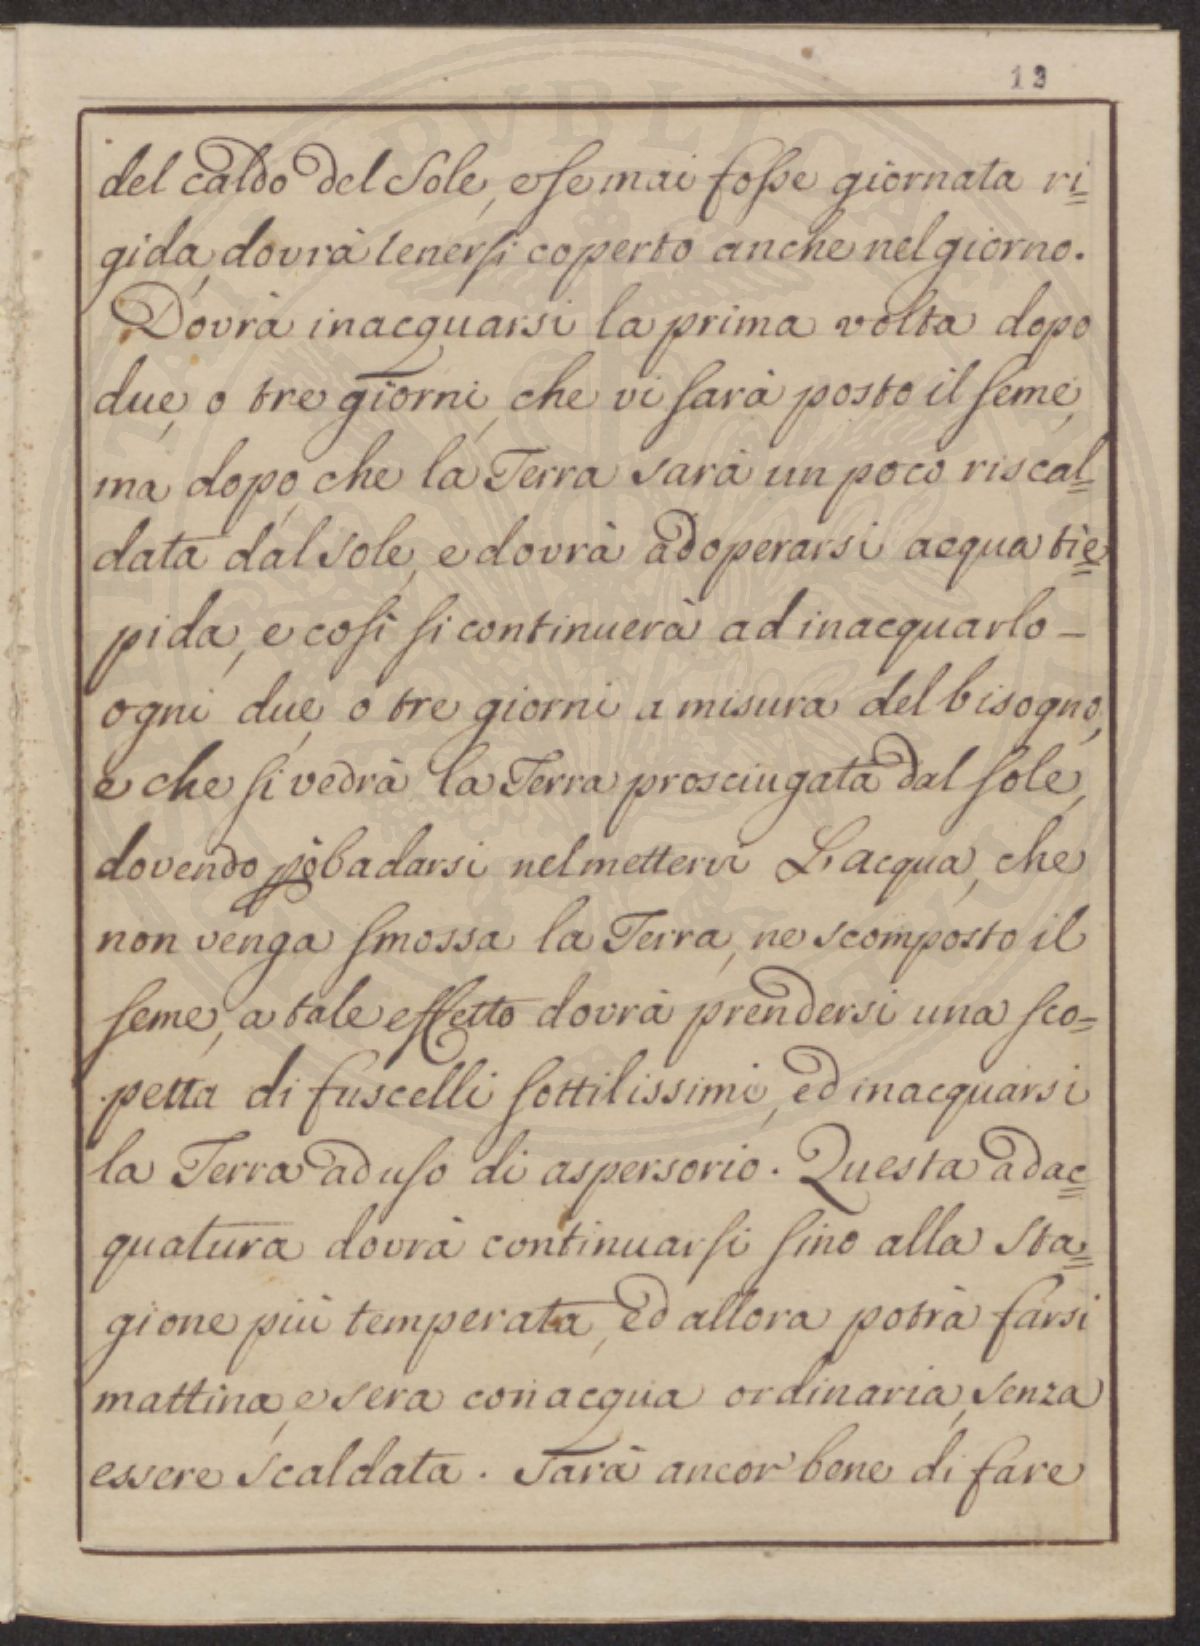 13
del caldo del Sole, e se mai fosse giornata ri=
gida, dovrà tenersi coperto anche nel giorno.
Dovrà inacquarsi la prima volta dopo
due, o tre giorni, che vi sarà posto il seme,
ma dopo, che la Terra sarà un poco riscal=
data dal sole, e dovrà adoperarsi acqua tie=
pida, e così si continuerà ad inacquarlo –
ogni due, o tre giorni a misura del bisogno,
e che si vedrà la Terra prosciugata dal sole,
dovendo però badarsi nel mettervi L'acqua, che
non venga smossa la Terra, ne scomposto il
seme, a tale effetto dovrà prendersi una sco=
petta di fuscelli sottilissimi, ed inacquarsi
la Terra ad uso di aspersorio. Questa adac=
quatura dovrà continuarsi sino alla sta=
gione più temperata, ed allora potrà farsi
mattina, e sera con acqua ordinaria, senza
essere scaldata. Sarà ancor bene di fare